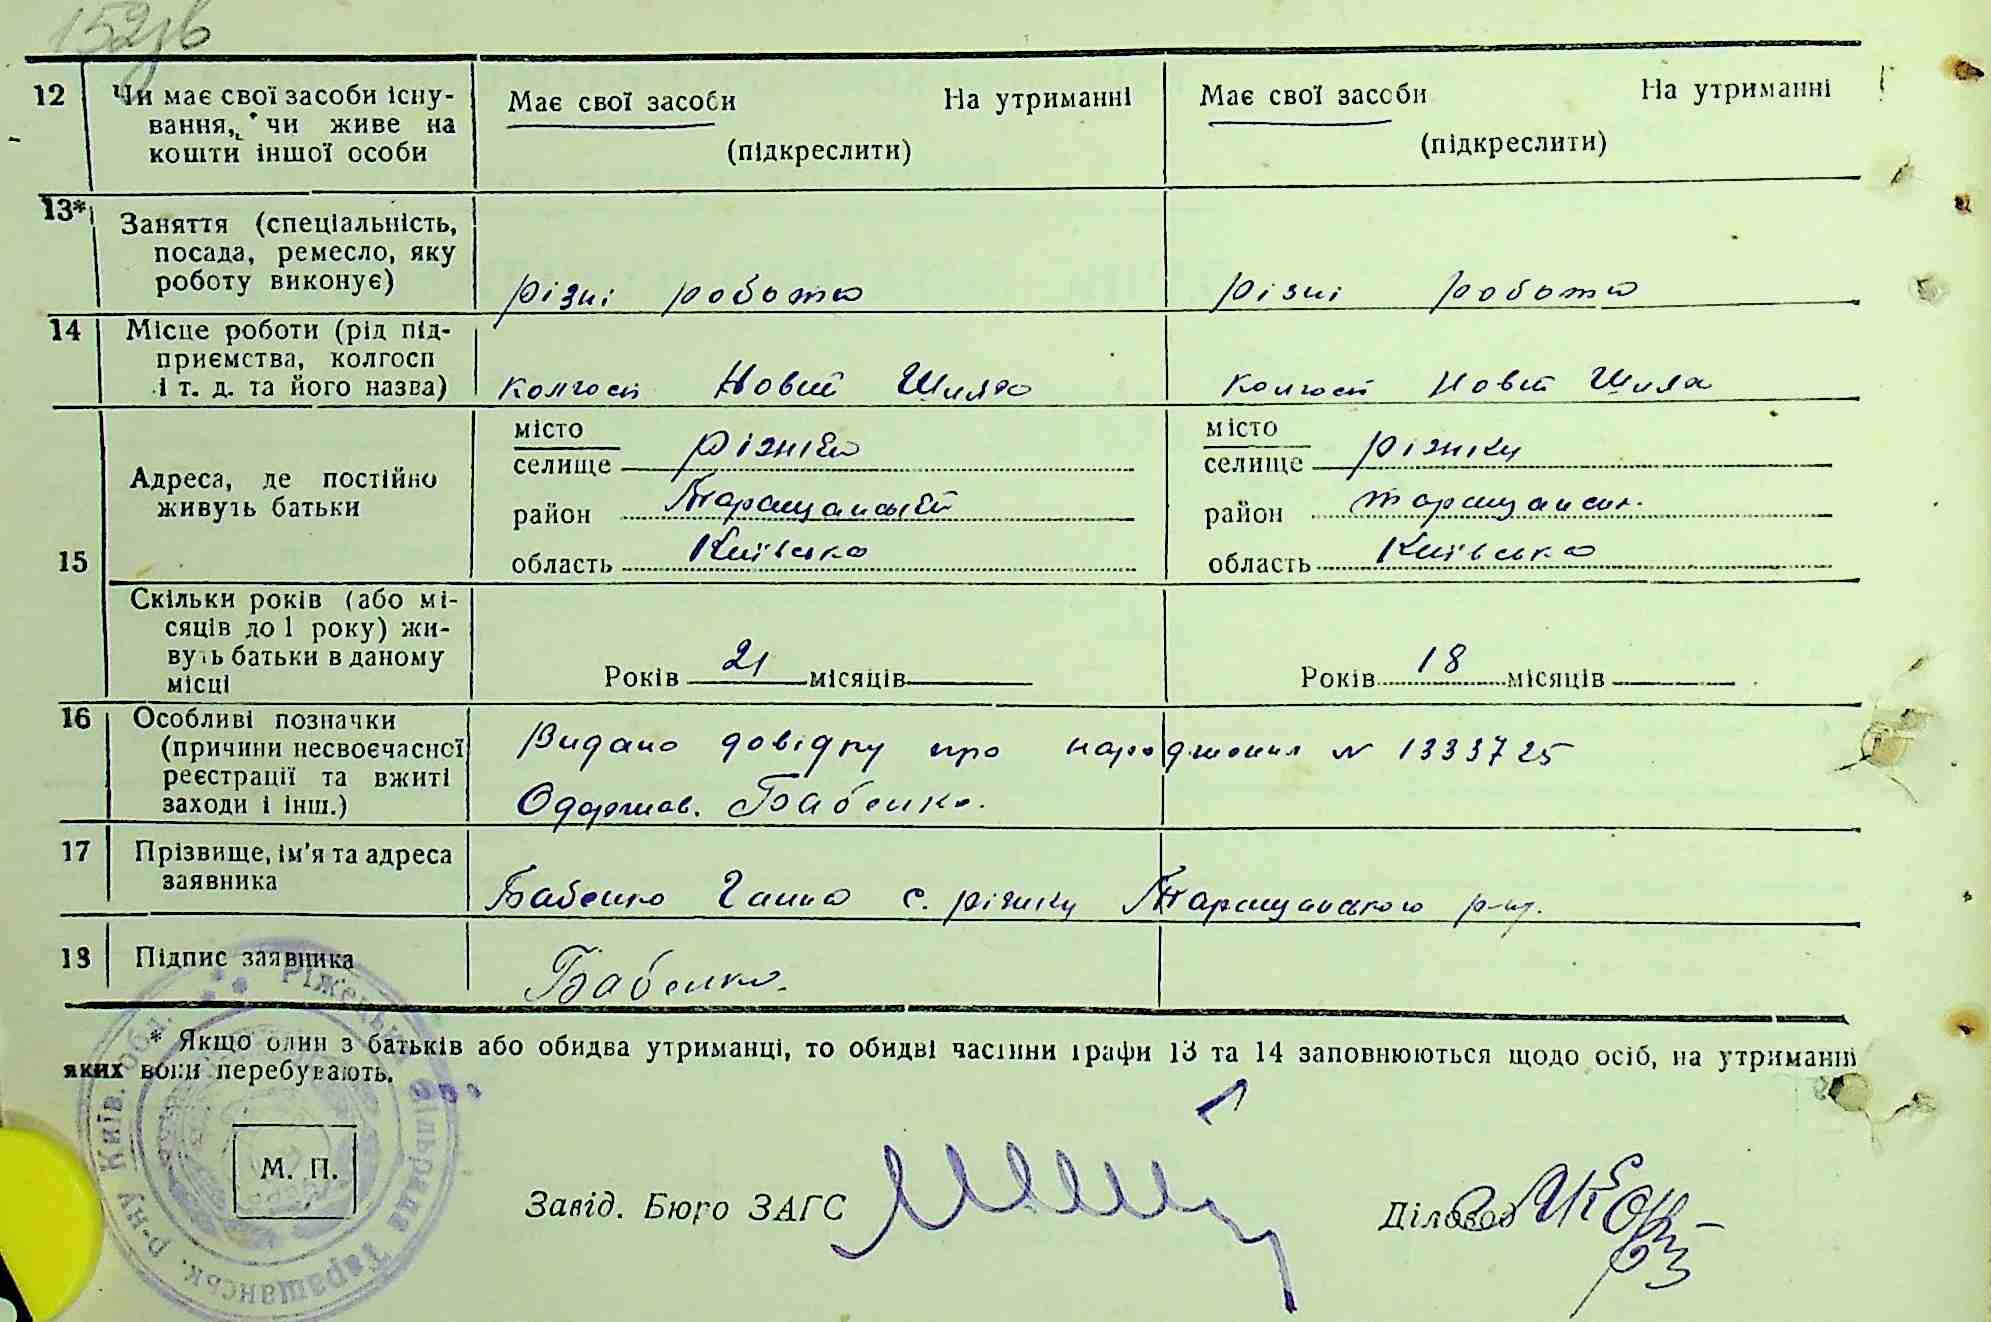 152зв
12 Чи має свої засоби існу- Має свої засоби На утриманні Має свої засоби На утриманні
вання, чи живе на (підкреслити) (підкреслити)
кошти іншої особи
13* Заняття (спеціальність,
посада, ремесло, яку
роботу виконує) різні робота різні робота
14 Місце роботи (рід під-
приємства, колгосп
і т. д. та його назва) колгосп Новий Шлях колгосп Новий Шлях
15 Адреса, де постійно
живуть батьки
місто
селище місто
селище Ріжки
район Таращанський район Таращанськ.
область Київська область Київська
Скільки років (або мі-
сяців до 1 року) жи-
вуть батьки в даному
місці Років 21 місяців Років 18 місяців
16 Особливі позначки
(причини несвоєчасної
реєстрації та вжиті
заходи і інш.)
Видано довідку про народження № 1333725
Одержав. Бабенко.
17 Прізвище, ім'я та адреса
заявника
Бабенко Ганна с. Ріжки Таращанського р-ну.
18 Підпис заявника Бабенко.
* Якщо один з батьків або обидва утриманці, то обидві частини графи 13 та 14 заповнюються щодо осіб, на утриманні
яких вони перебувають.
М. П.
Завід. Бюро ЗАГС Діловод
Таращанськ. р-ну Київ. обл.